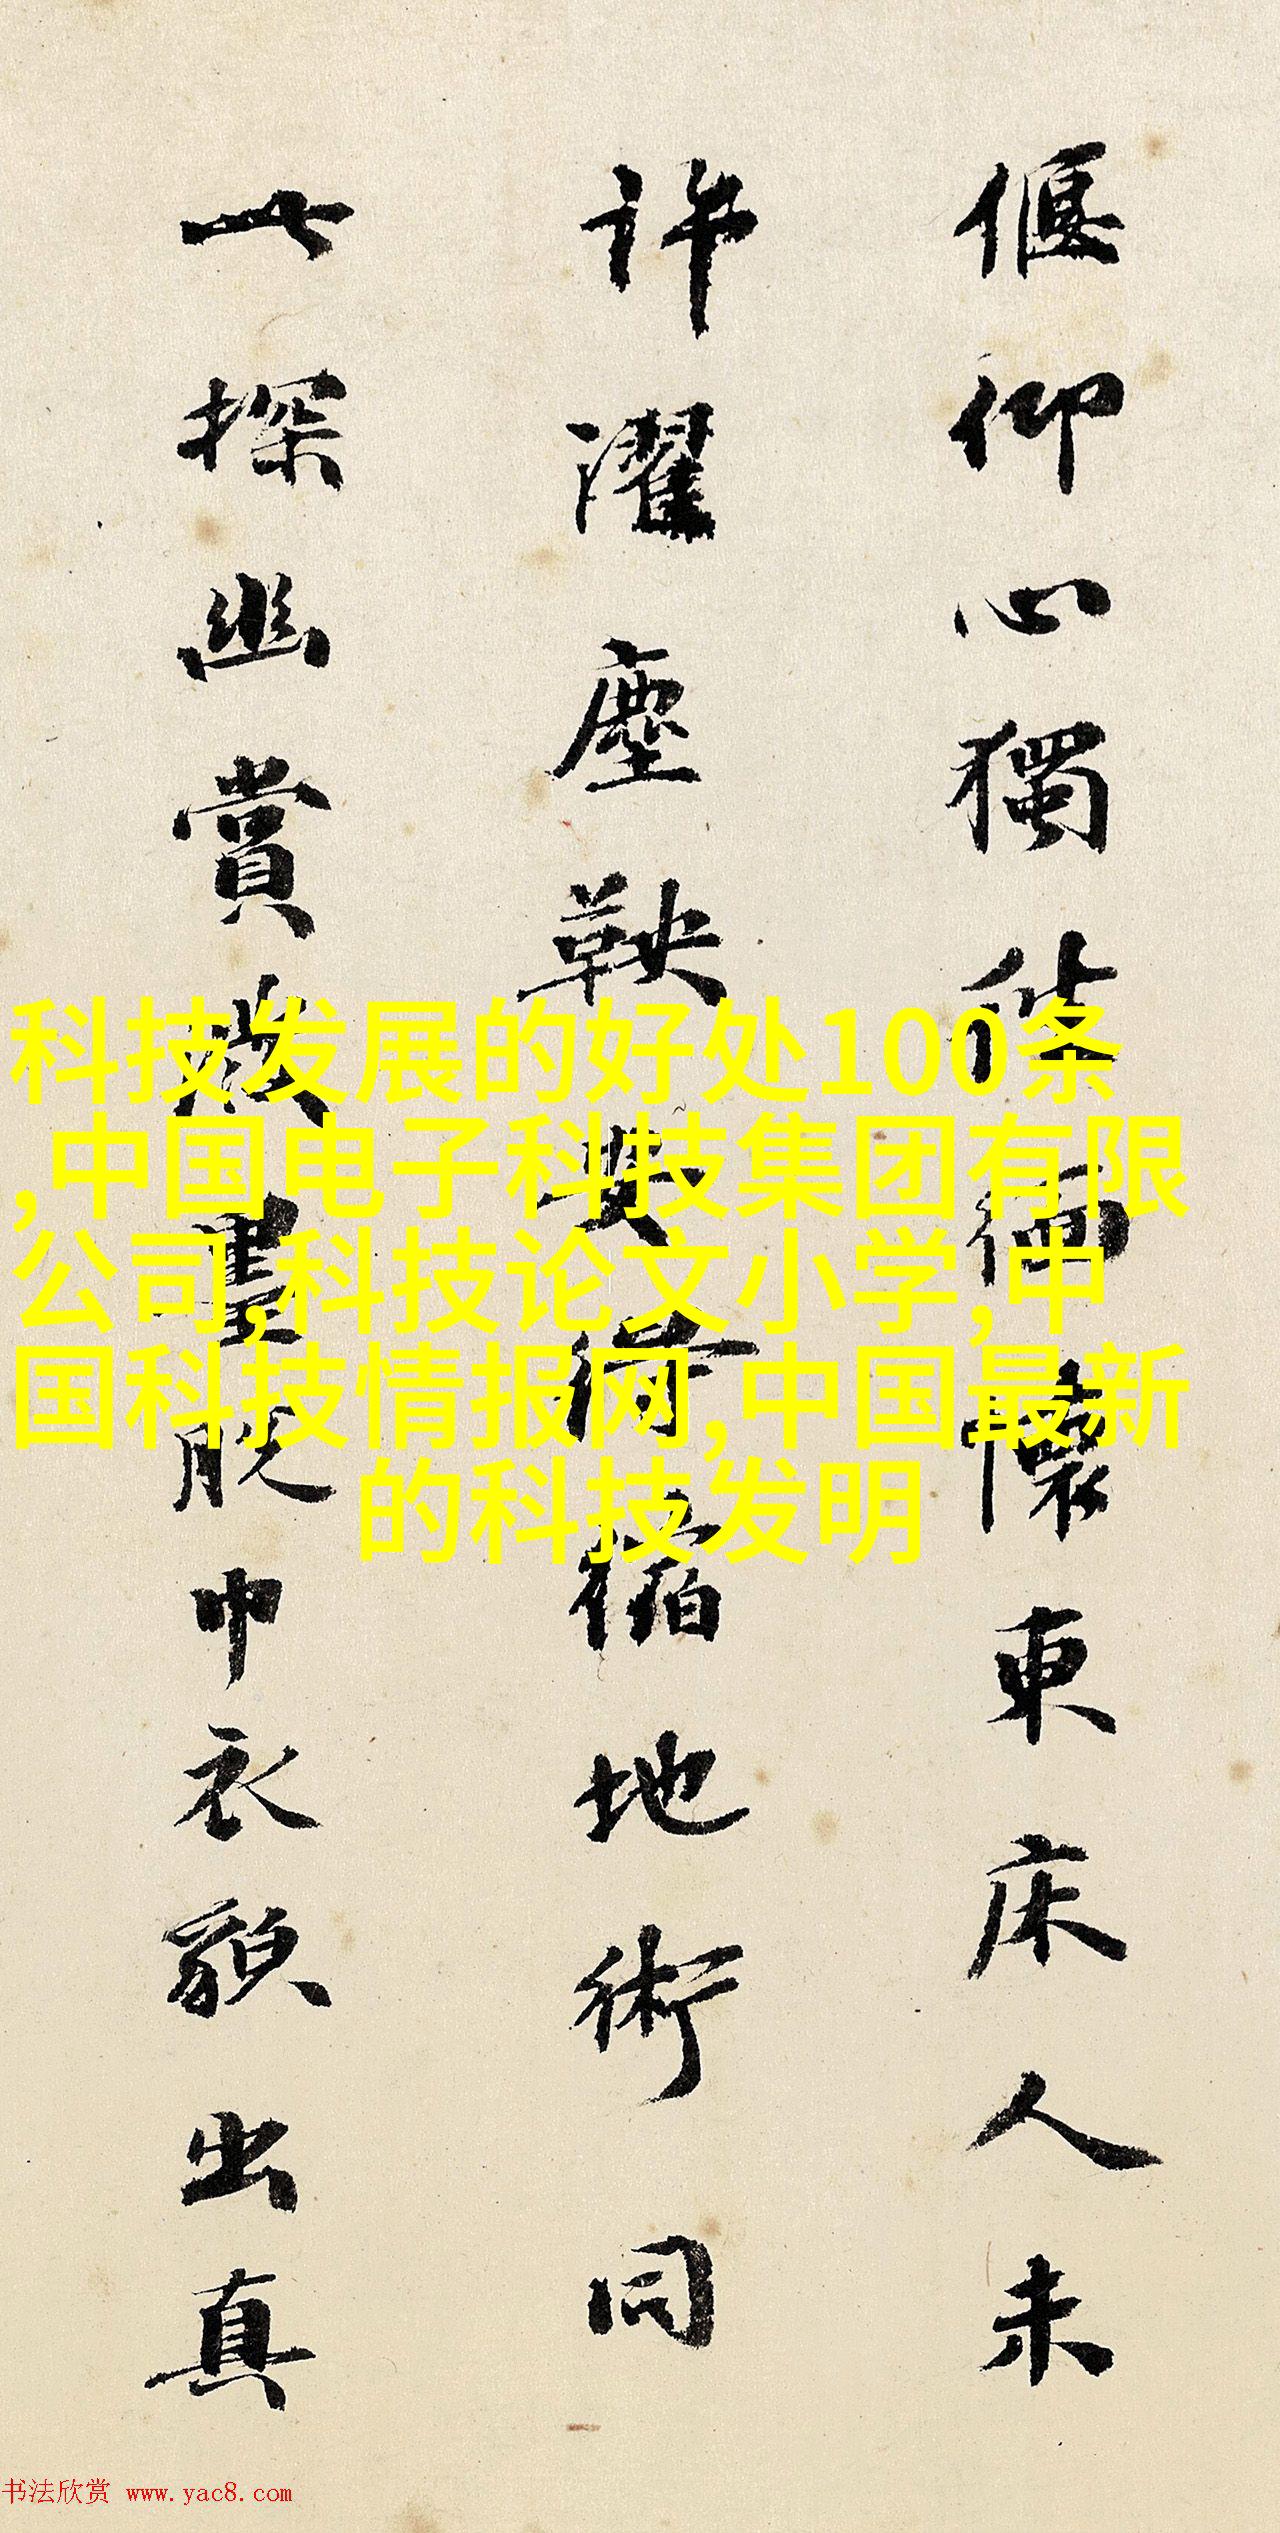 偃仰心獨
懷東床人未
許濯塵鞅
地術同
一探幽賞
脫巾衣貌出真
科技发展的好处100条
,中国电子科技集团有限
公司,科技论文小学,中
国科技情报网,中国最新
的科技发明
书法欣赏 www.yac8.com